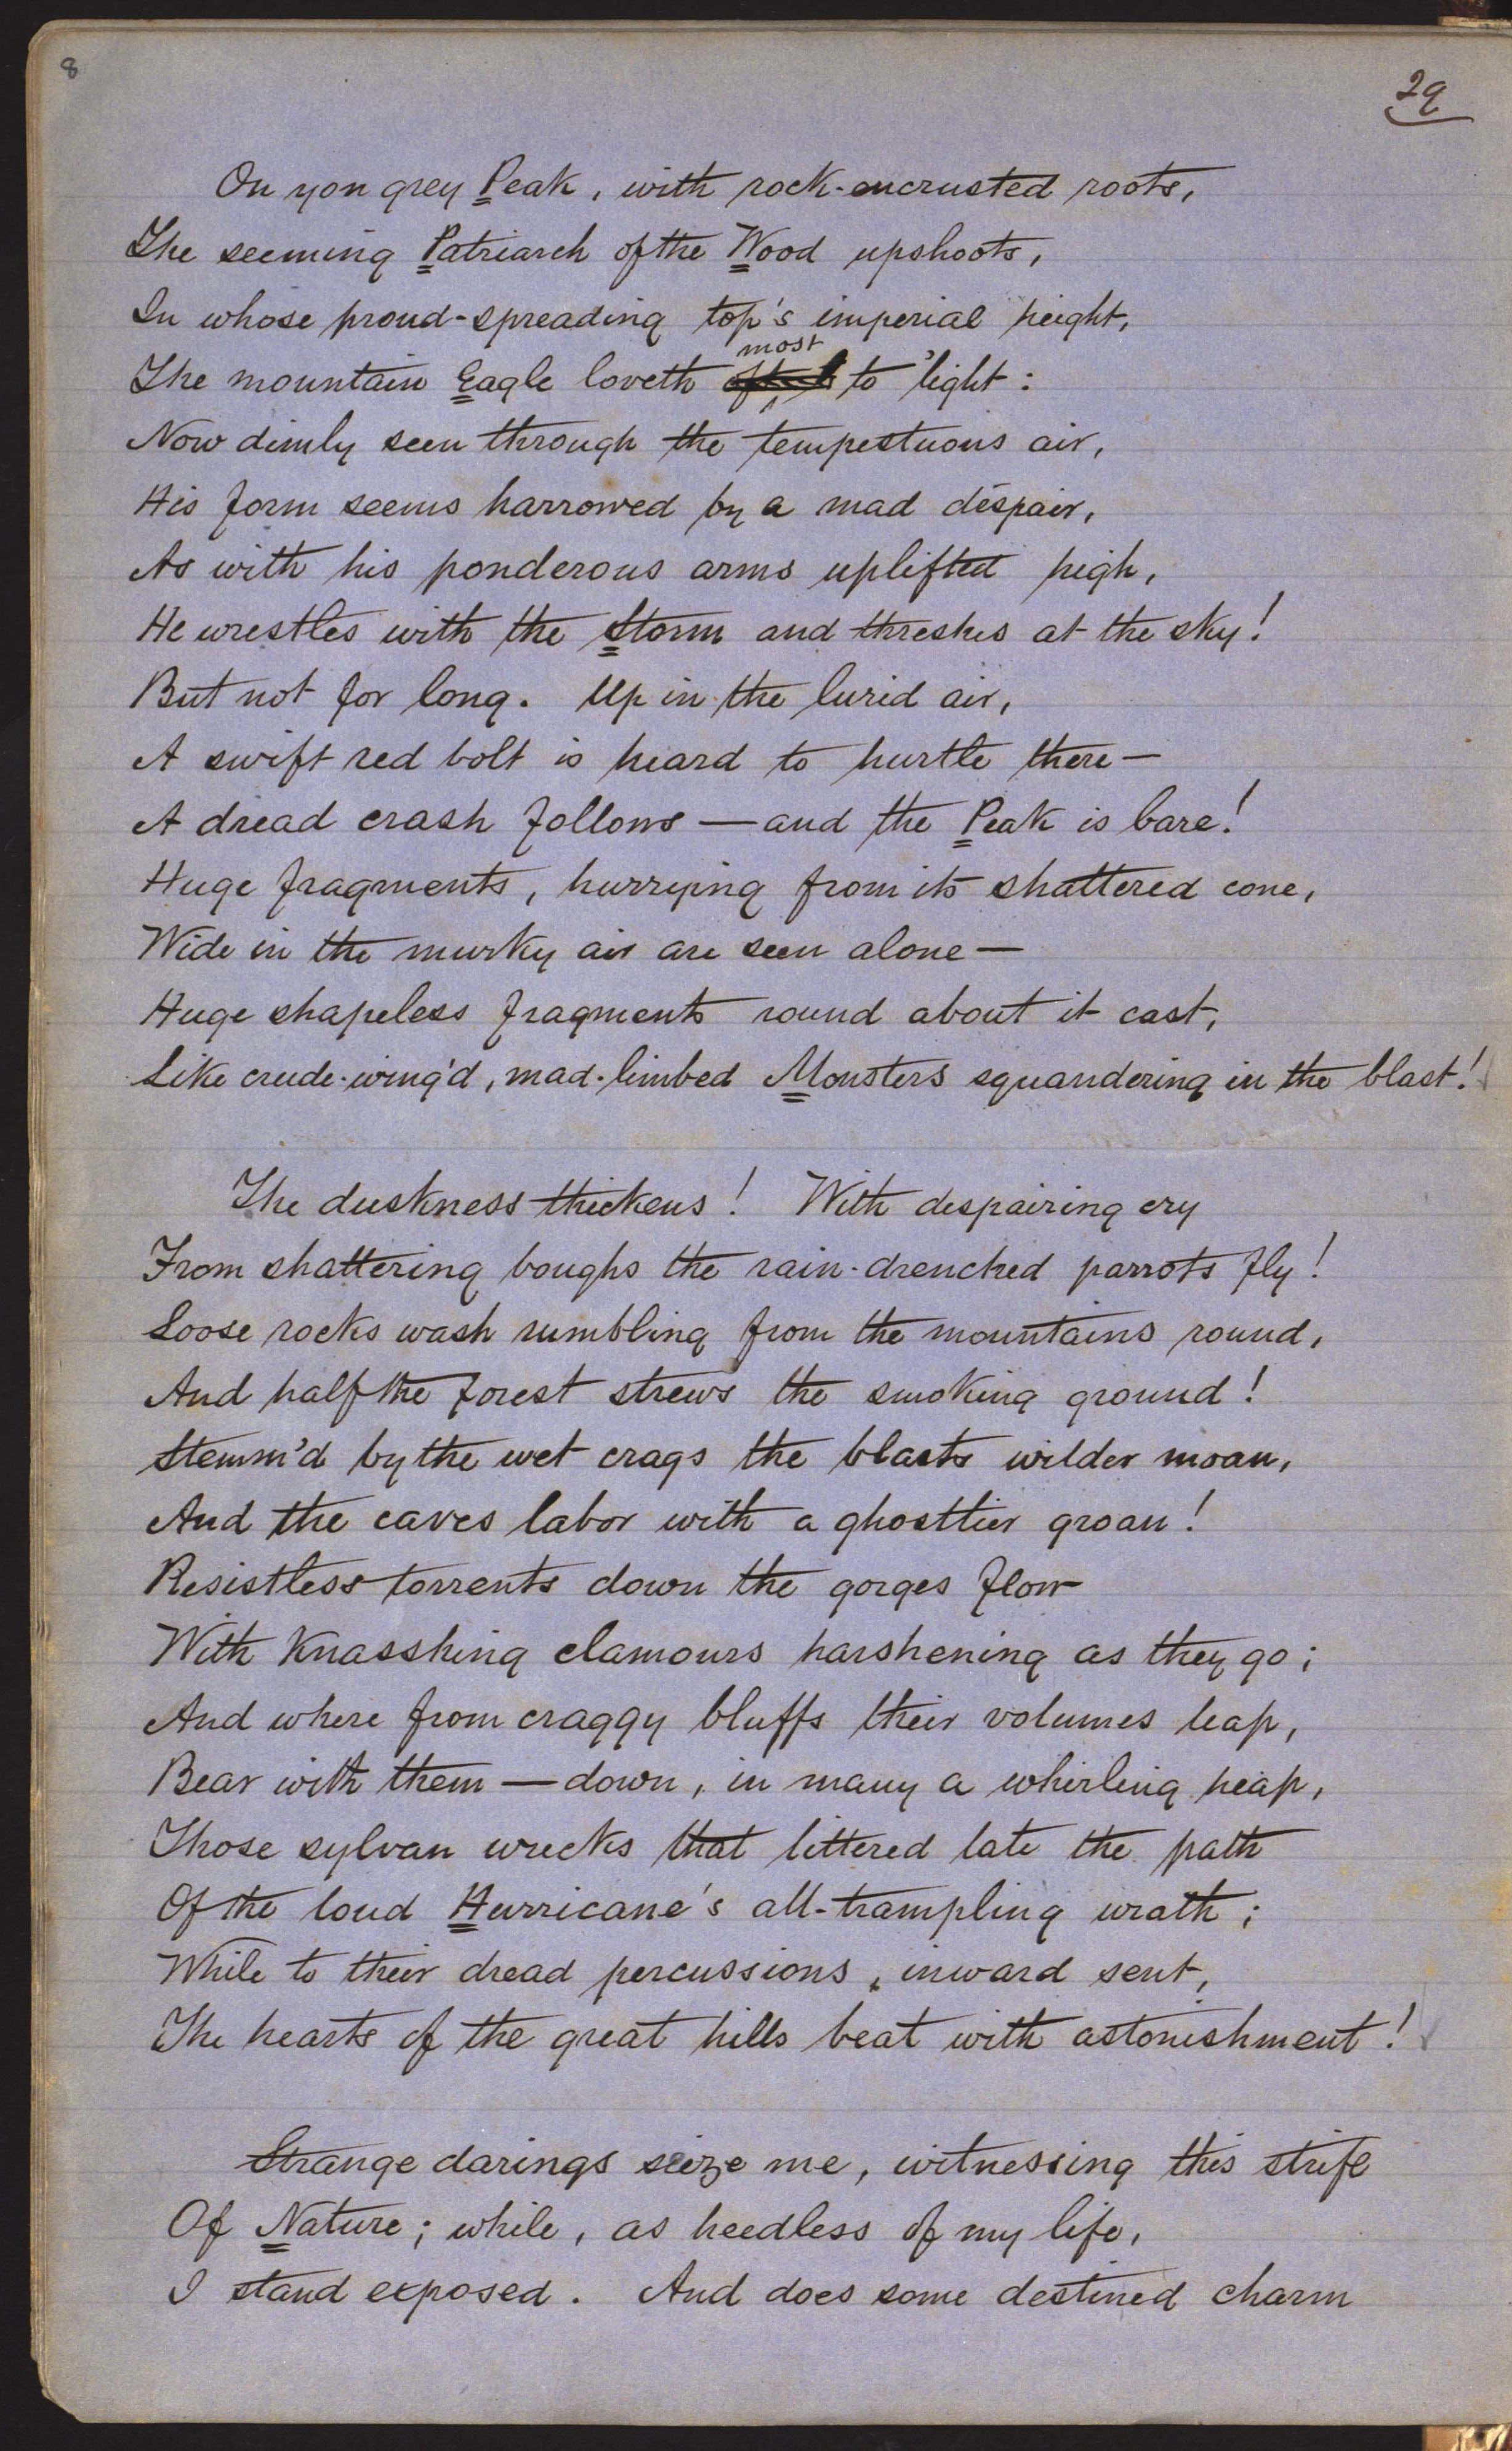 8
29
On yon grey Peak, with rock-encrusted roots,
The seeming Patriarch of the Wood upshoots,
In whose proud-spreading top's imperial height,
most
The mountain Eagle loveth to 'light:
Now dimly seen through the tempestuous air,
His form seems harrowed by a mad despair,
As with his ponderous arms uplifted high,
He wrestles with the Storm and threshes at the sky!
But not for long. Up in the lurid air,
A swift red bolt is heard to hurtle there—
A dread crash follows—and the Peak is bare!
Huge fragments, hurrying from its shattered cone,
Wide in the murky air are seen alone—
Huge shapeless fragments round about it cast,
Like crude-wing'd, mad-limbed Monsters squandering in the blast!
The duskness thickens! With despairing cry
From shattering boughs the rain-drenched parrots fly!
Loose rocks wash rumbling from the mountains round,
And half the forest strews the smoking ground!
Stemm'd by the wet crags the blasts wilder moan,
And the caves labor with a ghostlier groan!
Resistless torrents down the gorges flow
With knasshing clamours harshening as they go;
And where from craggy bluffs their volumes leap,
Bear with them—down, in many a whirling heap,
Those sylvan wrecks that littered late the path
Of the loud Hurricane's all-trampling wrath;
While to their dread percussions, inward sent,
The hearts of the great hills beat with astonishment!
Strange darings seize me, witnessing this strife
Of Nature; while, as heedless of my life,
I stand exposed. And does some destined charm